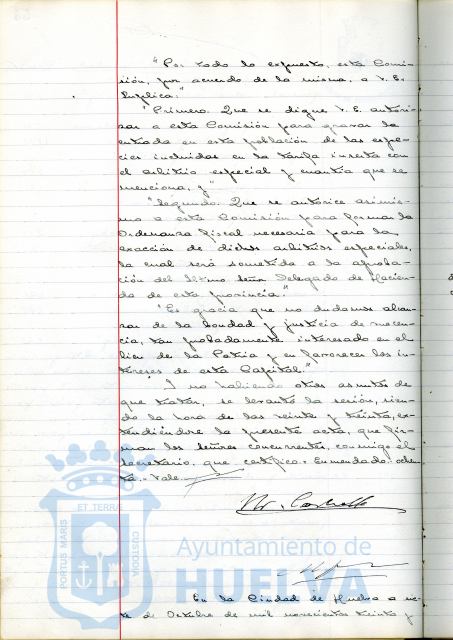 "Por todo lo expuesto, esta Comi-
sión, por acuerdo de la misma, a V. E.
Suplica:"
"Primero. Que se digne V. E. autori-
zar a esta Comisión para gravar la
entrada en esta población de las espe-
cies incluidas en la tarifa inserta con
el arbitrio especial y cuantía que se
menciona, y"
"Segundo. Que se autorice asimis-
mo a esta Comisión para formar la
Ordenanza fiscal necesaria para la
exacción de dichos arbitrios especiales,
la cual será sometida a la aproba-
ción del Iltmo señor Delegado de Hacien-
da de esta provincia."
"Es gracia que no dudamos alcan-
zar de la bondad y justicia de vuecen-
cia, tan probadamente interesado en el
bien de la Patria y en favorecer los in-
tereses de esta Capital."
Y no habiendo otros asuntos de
que tratar, se levantó la sesión, sien-
do la hora de las veinte y treinta, ex-
tendiéndose la presente acta, que fir-
man los señores concurrentes, conmigo el
secretario, que certifico = Enmendado: oche-
ta = Vale
PORTUS MARIS ET TERRAE CUSTODIA
Ayuntamiento de
HUELVA
En la Ciudad de Huelva a sie-
te de Octubre de mil novecientos treinta y